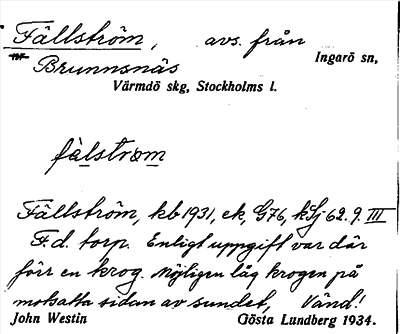 Fällström, avs. från
Brunnsnäs Ingarö sn,
Värmdö skg, Stockholms l.
fälstrøm
Fällström, kb 1931, ek, G76, kSj 62. 9. III
F.d. torp. Enligt uppgift var där
förr en krog. Möjligen låg krogen på
motsatta sidan av sundet, Vänd!
John Westin Gösta Lundberg 1934.